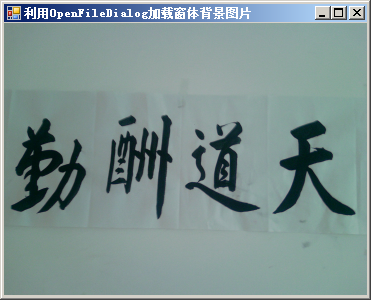 利用OpenFileDialog加载窗体背景图片
天道酬勤